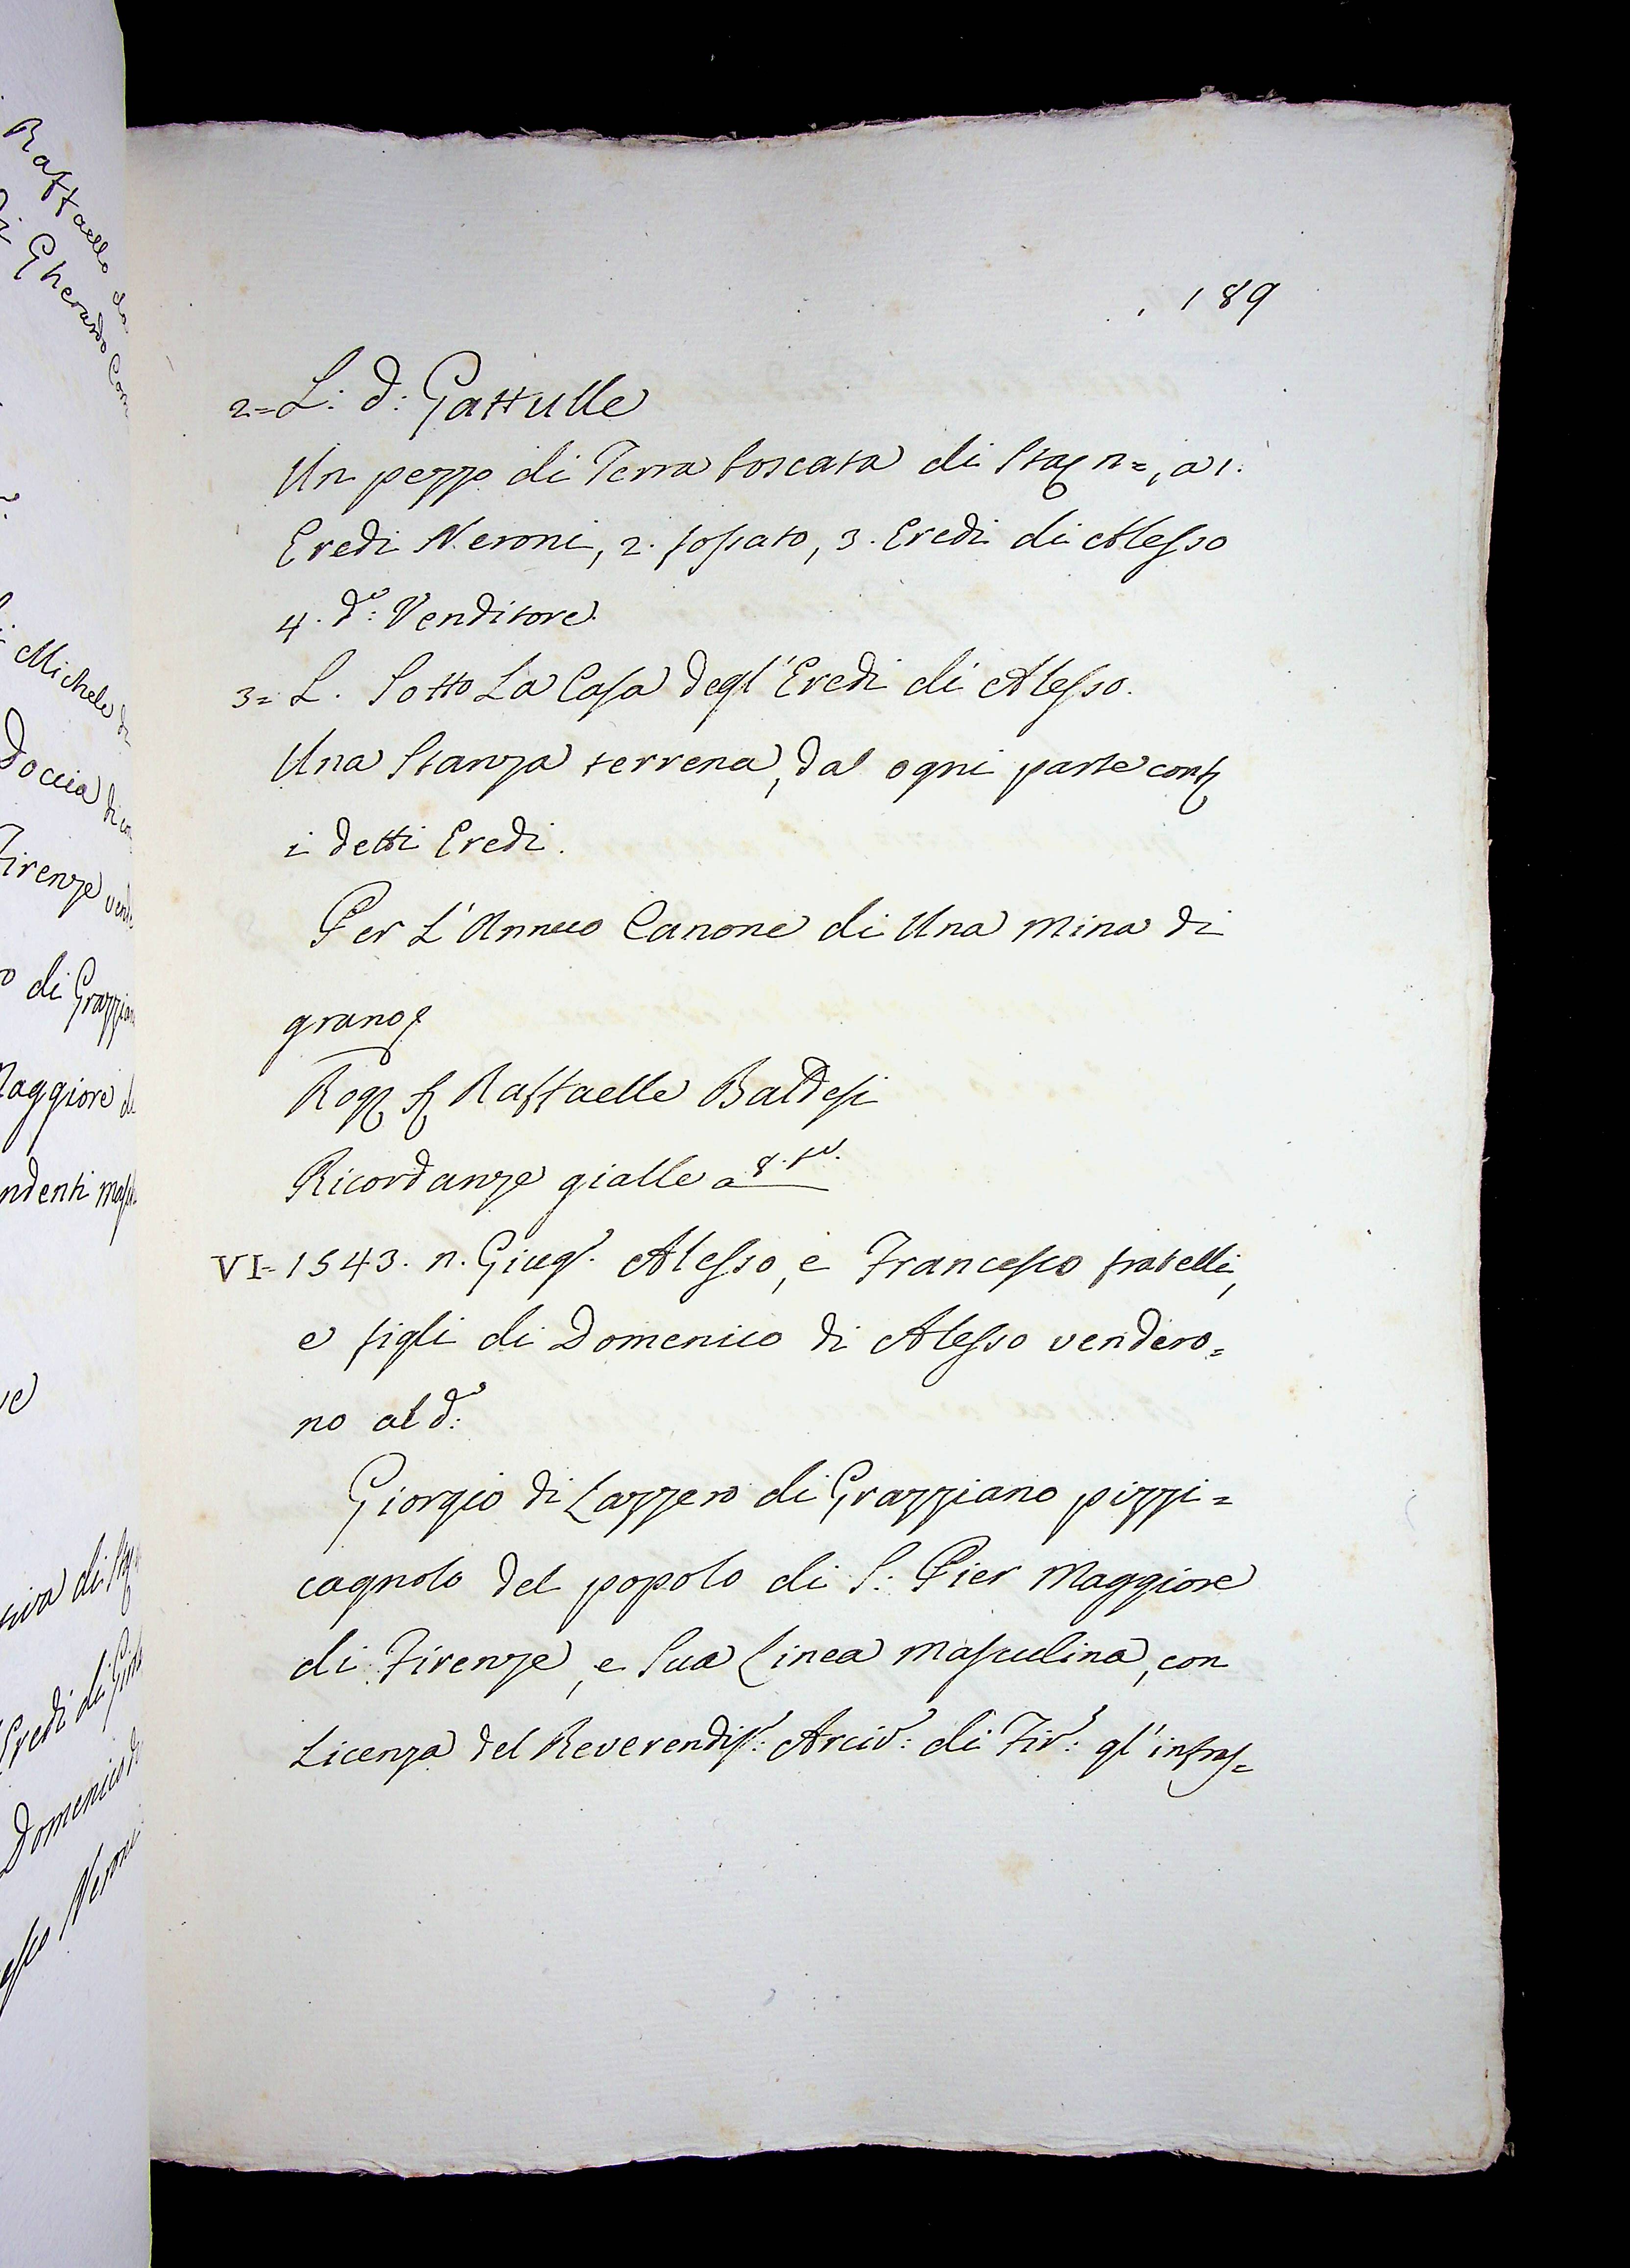 189
2= L: d: Gattulle
Un pezzo di Terra boscata di Staj n=, a 1.
Eredi Neroni, 2. fossato, 3. Eredi di Alesso
4. do: Venditore
3= L. Sotto La Casa degl'Eredi di Alesso.
Una Stanza terrena, da ogni parte conf
i detti Eredi.
Per L'Annuo Canone di Una mina di
grano
Rog Raffaelle Baldesi
Ricordanze gialle a
VI= 1543. n. Giug. Alesso, e Francesco fratelli,
e figli di Domenico di Alesso vendero=
no al do:
Giorgio di Lazzero di Grazziano pizzi=
cagnolo del popolo di S: Pier Maggiore
di Firenze, e Sua Linea Masculina, con
Licenza del Reverendis: Arciv: di Fir: gl'infras=
Raffaello
Gherardo Com
Michele di
Doccia
Firenze
di Grazzian
Maggiore
ndenti
di
Eredi di
Domenico
Neroni